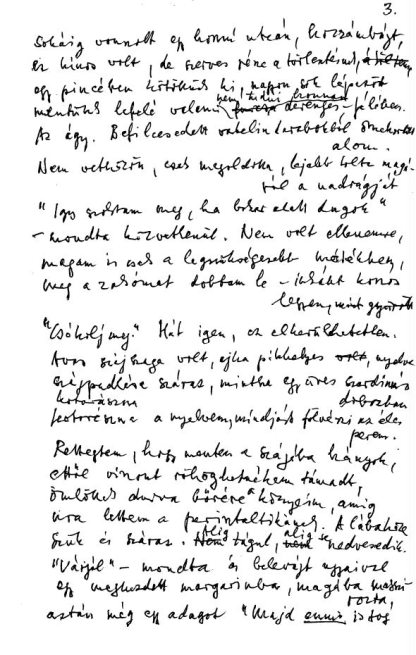 3.
sokáig vonult egy hosszú utcán, hozzám bújt,
ez kínos volt, de szerves része a történetnek,
egy pincében kötöttünk ki, nagyon sok lépcsőt
mentünk lefelé valami nem tudni honnan derengő fényben.
Az ágy. Befilcesedett vatelin darabokból összehordott
alom.
Nem vetkőzött, csak megoldotta, lejjebb tolta magá-
ról a nadrágját
"Így szoktam meg, ha bokor alatt dugok"
– mondta közvetlenül. Nem volt ellenemre,
magam is csak a legszükségesebb mértékben,
még a zakómat dobtam le – inkább koszos
legyen, mint gyűrött
"Csókolj meg." Hát igen, ez elkerülhetetlen.
Avas szájszaga volt, ajka pikkelyes, nyelve
szájpadlása száraz, mintha egy üres szardíniás
dobozban
kotorászna a nyelvem, mindjárt fölvérzi az éles
perem.
Rettegtem, hogy menten a szájába hányok,
ettől viszont röhöghetnékem támadt,
ömlöttek durva bőrére a könnyeim, amíg
úrrá lettem a perisztaltikámon. A lába köze
szűk és száraz. Alig tágul, alig se nedvesedik.
"Várjál" – mondta és belevájt ujjaival
egy megkezdett margarinba, magába masszí-
rozta,
aztán még egy adagot "Majd ennis is fog